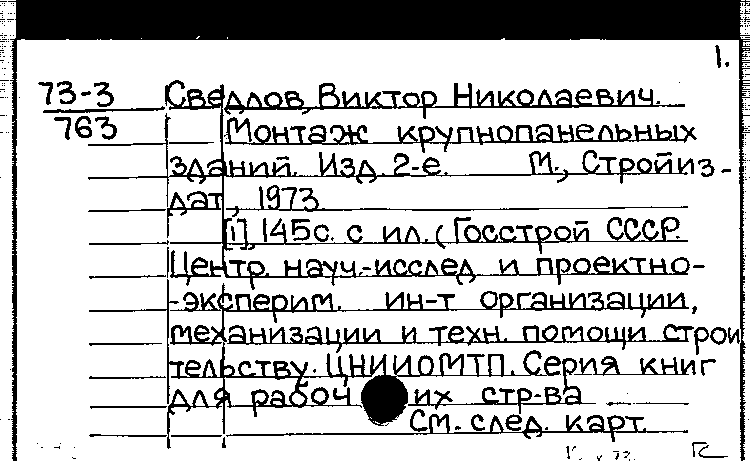 1.
73-3 Сведлов, Виктор Николаевич.
763 Монтаж крупнопанельных
зданий. Изд. 2-е. М., Стройиз-
дат, 1973
[1], 145с. с ил. (Госстрой СССР.
Центр. науч.-исслед и проектно-
-эксперим. ин-т организации,
механизации и техн. помощи строи
тельству. ЦНИИОМТП. Серия книг
для рабочих стр-ва
См. след. карт.